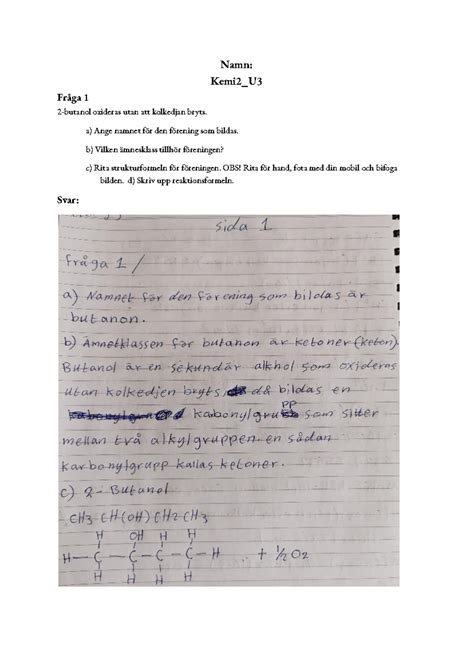 Namn:
Kemi2_U3
Fråga 1
2-butanol oxideras utan att kolkedjan bryts.
a) Ange namnet för den förening som bildas.
b) Vilken ämnesklass tillhör föreningen?
c) Rita strukturformeln för föreningen. OBS! Rita för hand, fota med din mobil och bifoga
bilden. d) Skriv upp reaktionsformeln.
Svar:
sida 1
Fråga 1 /
a) Namnet för den förening som bildas är
butanon.
b) Ämnetklassen för butanon är ketoner (keton).
Butanol är en sekundär alkhol som oxiderns
utan kolkedjen bryts, då bildas en
karbonylgrupp som sitter
mellan två alkylgruppen en sådan
karbonylgrupp kallas ketoner.
c) 2-Butanol
CH3 CH(OH) CH2 CH3
H OH H H
H-C-C-C-C-H + ½O2
H H H H